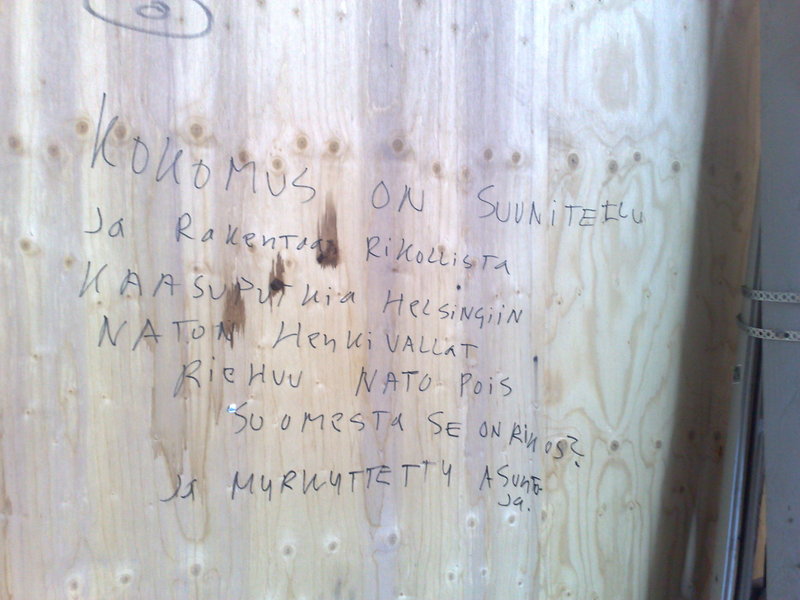 KOKOMUS ON SUUNITEILU
Ja Rakentaa Rikollista
KAASUPUTKia HELSINGIIN
NATON HenkiVALLAT
RieHUU NATO POis
SUOMESTA SE ON RIKOS?
Ja MYRKYTTETTY ASUNTO-
Ja.